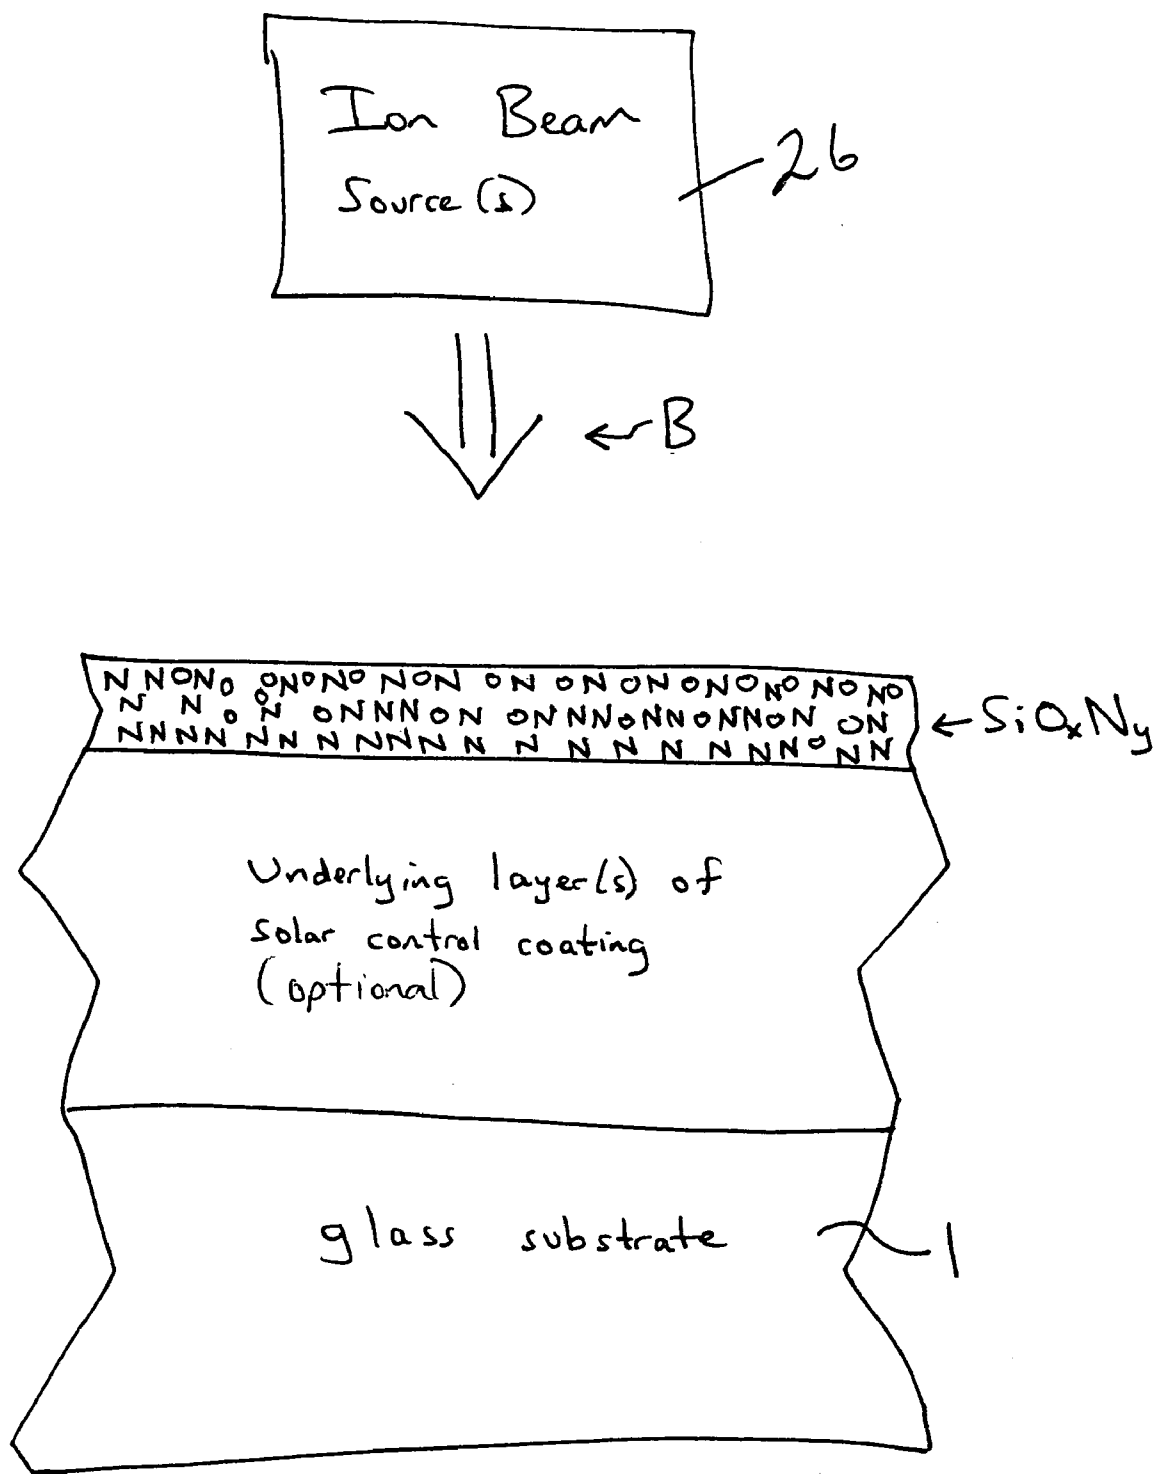 Ion Beam
Source(s)
26
B
N N O N O O N O N O N O N O N O N O N O N O N O N O N O
N N O O N O N N N O N O N N N O N N O N N O N O N
N N N N N N N N N N N N N N N N N N N O N N
SiOxNy
Underlying layer(s) of
solar control coating
(optional)
glass substrate
1